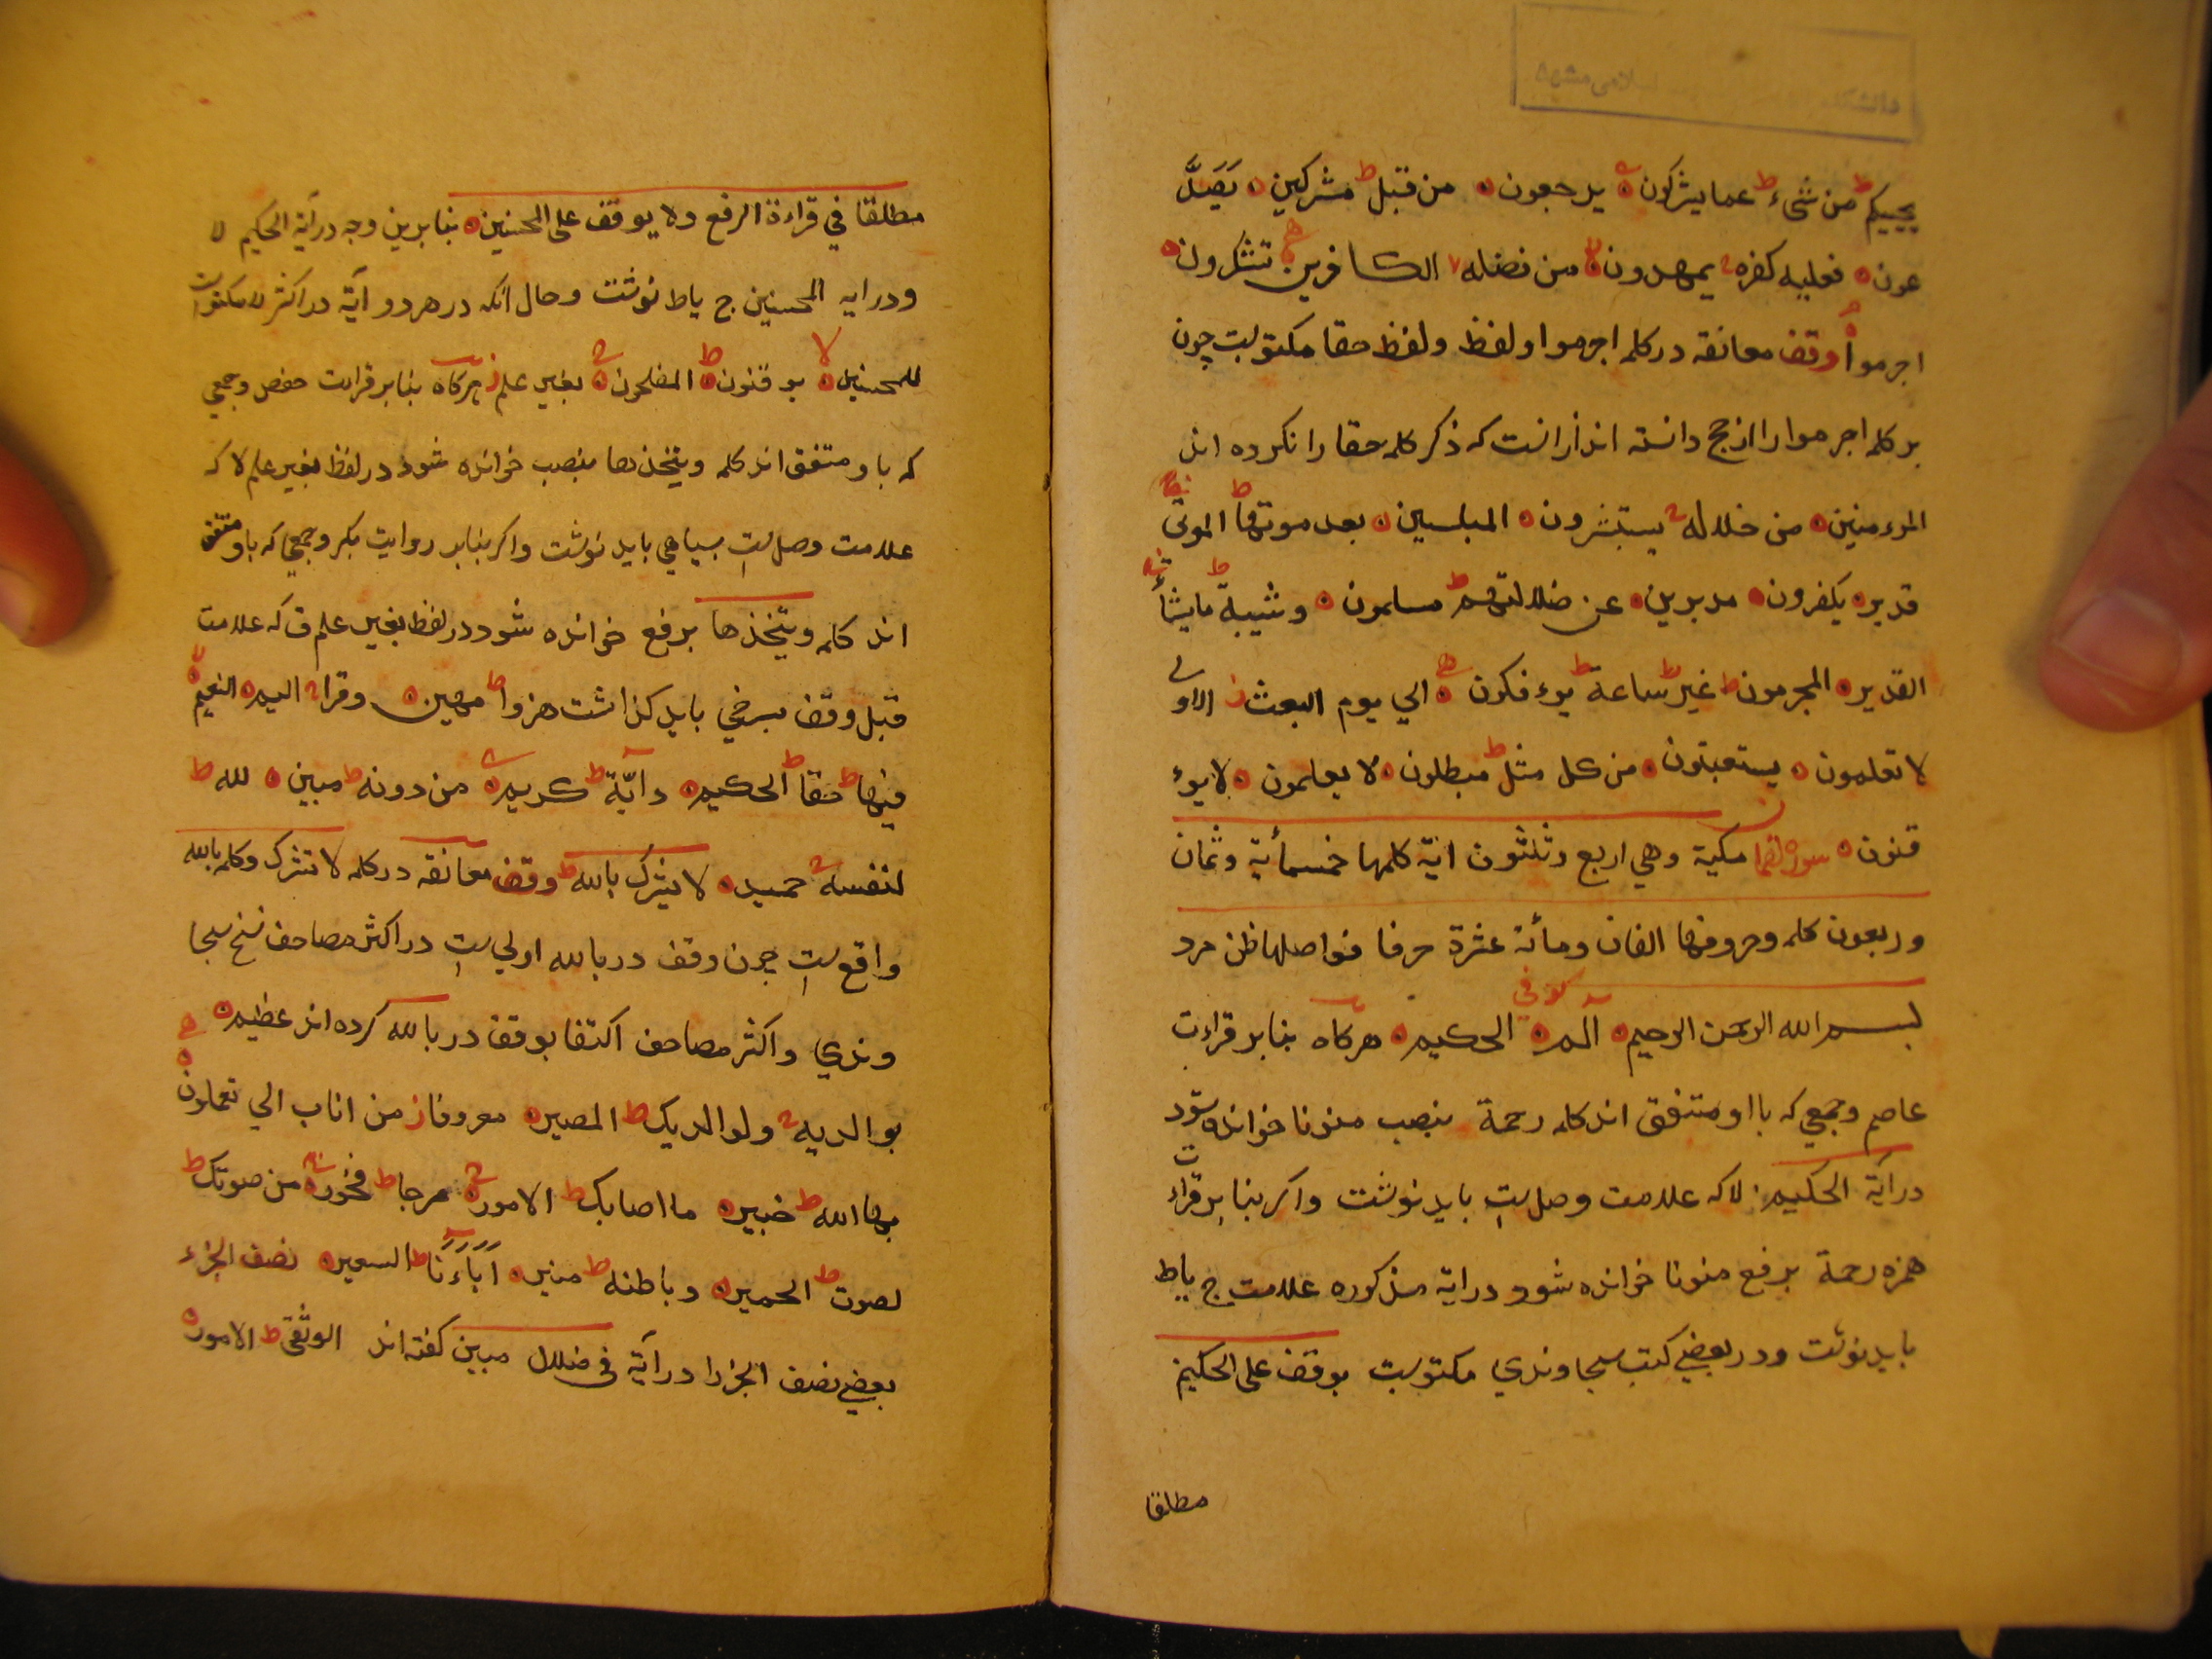 يحييكم ط من شیء ط عما يشركون يرجعون من قبل ط مشركين يَصَّدَّ
عون فعليه كفره ج يمهدون لا من فضله ط الكافرين تشكرون
اجرموا وقف معانقه در كلمه اجرموا و لفظ حقا مكتوبست چون
بر كلمه اجرموا را ازجج دانسته اند ازانست كه ذكر كلمه حقا را نكرده اند
المؤمنين من خلاله ج يستبشرون المبلسين بعد موتها ط الموتی
قدير يكفرون مدبرين عن ضلالتهم ط مسلمون وشيبة ط مايشاء
القدير المجرمون ط غير ساعة ط يوء فكون الي يوم البعث ز الاولی
لا تعلمون يستعتبون من كل مثل ط مبطلون لا يعلمون لا يوء
قنون سورة لقمان مكية وهي اربع وثلثون اية كلمها خمسمأية وثمان
وربعون كلمه وحروفها الفان ومأئة عشرة حرفا فواصلها ظن مرد
بسم الله الرحمن الرحيم آلم كوفي الحكيم هركاه بنابر قراءت
عاصم وجمعي كه با او متفق اند كلمه رحمة بنصب منونا خوانده شود
درآية الحكيم لا كه علامت وصل است بايد نوشت واكر بنابر قراءت
همزه رحمة برفع منونا خوانده شود دراية مذكوره علامت ج ياط
بايد نوشت ودر بعضي كتب سجاوندي مكتوبست يوقف علی الحكيم
مطلقا
مطلقا في قراءة الرفع ولا يوقف علی المحسنين بنابرين وجه درآية الحكيم لا
ودرايه المحسنين ج ياط نوشت وحال انكه در هر دو آية در اكثر لا مكتوبست
للمحسنين لا يوقنون ط المفلحون بغير علم ز هركاه بنابر قراءت حفص وجمعي
كه با او متفق اند كلمه ويتخذها بنصب خوانده شود در لفظ بغير علم لا كه
علامت وصل است بسياهي بايد نوشت واكر بنابر روايت بكر وجمعي كه با او متفق
اند كلمه ويتخذها برفع خوانده شود در لفظ بغير علم ق كه علامت
قبل وقف بسرخي بايد كذاشت هزوا ط مهين وقرا ج اليم النعيم لا
فيها ط حقا ط الحكيم دآبّة ط كريم من دونه ط مبين لله ط
لنفسه ج حميد لا تشرك بالله ط وقف معانقه در كلمه لا تشرك وكلمه بالله
واقع است چون وقف در بالله اولي است در اكثر مصاحف نسخ سجا
وندي واكثر مصاحف اكتفا بوقف در بالله كرده اند عظيم
بوالديه ج ولوالديك ط المصير معروفا ز من اناب الي تعملون
بها الله ط خبير ما اصابك ط الامور مرحا ط فخور من صوتك ط
لصوت ط الحمير وباطنه ط منير آبَاءَنَا ط السعير نصف الجزء
بعضي نصف الجزء را درآية في ضلال مبين كفته اند الوثقی ط الامور